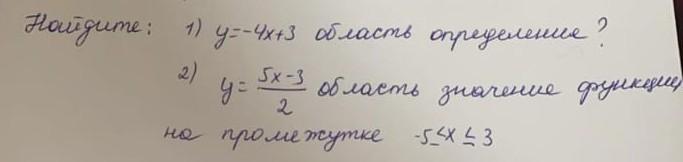 Найдите: 1) y=-4x+3 область определение?
2) y= 5x-3/2 область значение функции
на промежутке -5≤x≤3